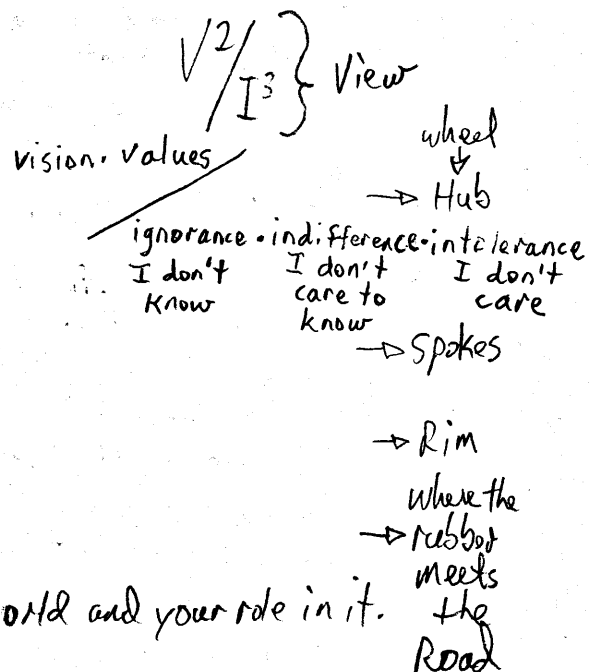 V²/I³ } View
vision · values
wheel
→ Hub
ignorance · indifference · intolerance
I don't know
I don't care to know
I don't care
→ Spokes
→ Rim
where the
→ rubber
meets
the
Road
orld and your role in it.